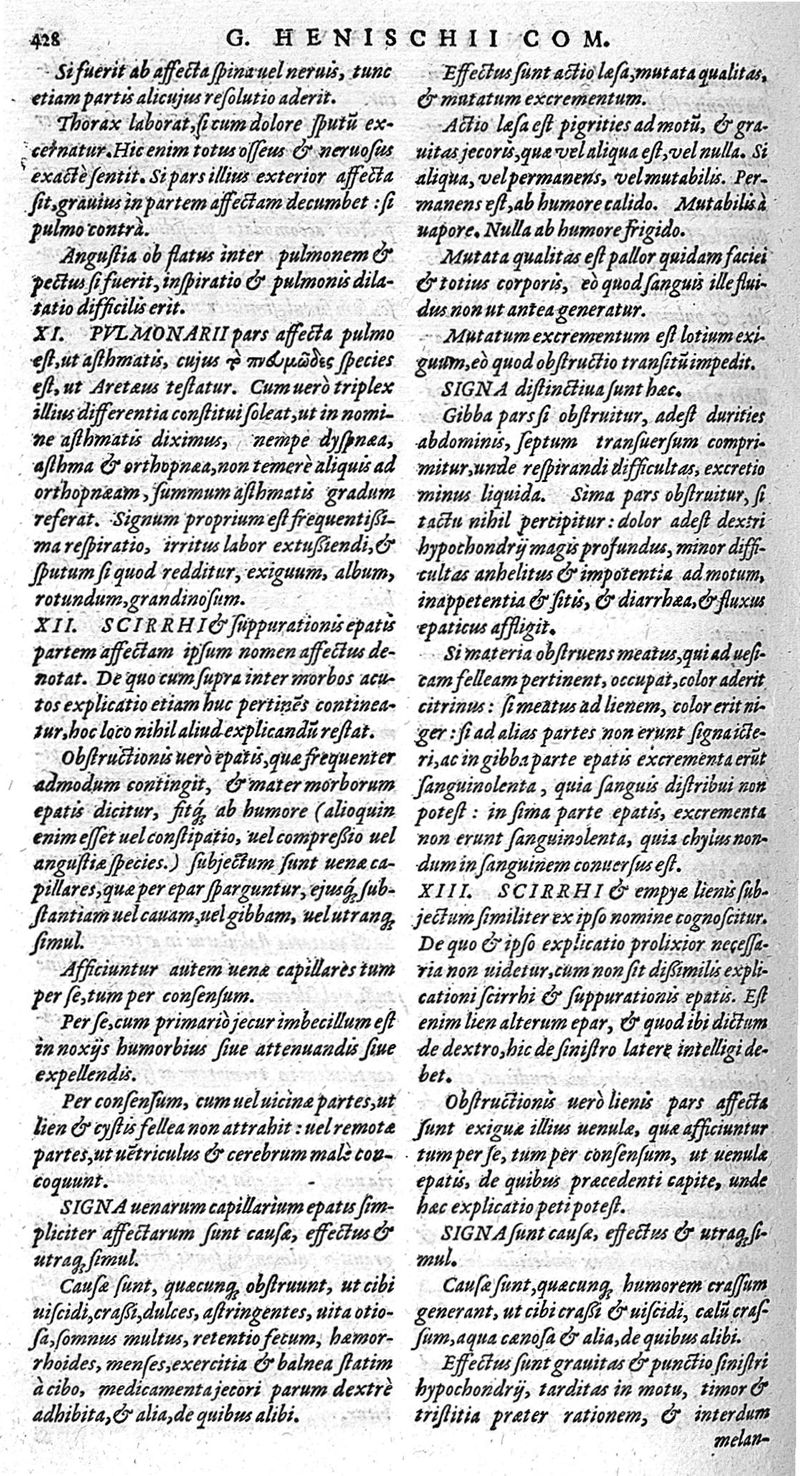 428
G. HENISCHII COM.
Si fuerit ab affecta spina uel neruis, tunc
etiam partis alicujus resolutio aderit.
Thorax laborat, si cum dolore sputũ ex-
cernatur. Hic enim totus osseus & neruosus
exactè sentit. Si pars illius exterior affecta
sit, grauius in partem affectam decumbet : si
pulmo contrà.
Angustia ob flatus inter pulmonem &
pectus si fuerit, inspiratio & pulmonis dila-
tatio difficilis erit.
XI. PVLMONARII pars affecta pulmo
est, ut asthmatis, cujus τὸ πνευμῶδες species
est, ut Aretæus testatur. Cum uerò triplex
illius differentia constitui soleat, ut in nomi-
ne asthmatis diximus, nempe dyspnæa,
asthma & orthopnæa, non temerè aliquis ad
orthopnæam, summum asthmatis gradum
referat. Signum proprium est frequentißi-
ma respiratio, irritus labor extußiendi, &
sputum si quod redditur, exiguum, album,
rotundum, grandinosum.
XII. SCIRRHI & suppurationis epatis
partem affectam ipsum nomen affectus de-
notat. De quo cum supra inter morbos acu-
tos explicatio etiam huc pertinẽs continea-
tur, hoc loco nihil aliud explicandũ restat.
Obstructionis uerò epatis, quæ frequenter
admodum contingit, & mater morborum
epatis dicitur, fitq́; ab humore (alioquin
enim esset uel constipatio, uel compreßio uel
angustiæ species.) subjectum sunt uenæ ca-
pillares, quæ per epar sparguntur, ejusq́; sub-
stantiam uel cauam, uel gibbam, uel utranq;
simul.
Afficiuntur autem uenæ capillares tum
per se, tum per consensum.
Per se, cum primariò jecur imbecillum est
in noxijs humorbius siue attenuandis siue
expellendis.
Per consensum, cum uel uicinæ partes, ut
lien & cystis fellea non attrahit : uel remotæ
partes, ut uẽtriculus & cerebrum malè con-
coquunt.
SIGNA uenarum capillarium epatis sim-
pliciter affectarum sunt causæ, effectus &
utraq; simul.
Causæ sunt, quæcunq; obstruunt, ut cibi
uiscidi, craßi, dulces, astringentes, uita otio-
sa, somnus multus, retentio fecum, hæmor-
rhoides, menses, exercitia & balnea statim
à cibo, medicamenta jecori parum dextrè
adhibita, & alia, de quibus alibi.
Effectus sunt actio læsa, mutata qualitas,
& mutatum excrementum.
Actio læsa est pigrities ad motũ, & gra-
uitas jecoris, quæ vel aliqua est, vel nulla. Si
aliqua, vel permanens, vel mutabilis. Per-
manens est, ab humore calido. Mutabilis à
uapore. Nulla ab humore frigido.
Mutata qualitas est pallor quidam faciei
& totius corporis, eò quod sanguis ille flui-
dus non ut antea generatur.
Mutatum excrementum est lotium exi-
guum, eò quod obstructio transitũ impedit.
SIGNA distinctiua sunt hæc.
Gibba pars si obstruitur, adest durities
abdominis, septum transuersum compri-
mitur, unde respirandi difficultas, excretio
minus liquida. Sima pars obstruitur, si
tactu nihil percipitur : dolor adest dextri
hypochondrij magis profundus, minor diffi-
cultas anhelitus & impotentia ad motum,
inappetentia & sitis, & diarrhæa, & fluxus
epaticus affligit.
Si materia obstruens meatus, qui ad uesi-
cam felleam pertinent, occupat, color aderit
citrinus : si meatus ad lienem, color erit ni-
ger : si ad alias partes non erunt signa icte-
ri, ac in gibba parte epatis excrementa erũt
sanguinolenta, quia sanguis distribui non
potest : in sima parte epatis, excrementa
non erunt sanguinolenta, quia chylus non-
dum in sanguinem conuersus est.
XIII. SCIRRHI & empyæ lienis sub-
jectum similiter ex ipso nomine cognoscitur.
De quo & ipso explicatio prolixior necessa-
ria non uidetur, cum non sit dißimilis expli-
cationi scirrhi & suppurationis epatis. Est
enim lien alterum epar, & quod ibi dictum
de dextro, hic de sinistro latere intelligi de-
bet.
Obstructionis uerò lienis pars affecta
sunt exiguæ illius uenulæ, quæ afficiuntur
tum per se, tum per consensum, ut uenulæ
epatis, de quibus præcedenti capite, unde
hæc explicatio peti potest.
SIGNA sunt causæ, effectus & utraq; si-
mul.
Causæ sunt, quæcunq; humorem crassum
generant, ut cibi craßi & uiscidi, cælũ cras-
sum, aqua cænosa & alia, de quibus alibi.
Effectus sunt grauitas & punctio sinistri
hypochondrij, tarditas in motu, timor &
tristitia præter rationem, & interdum
melan-